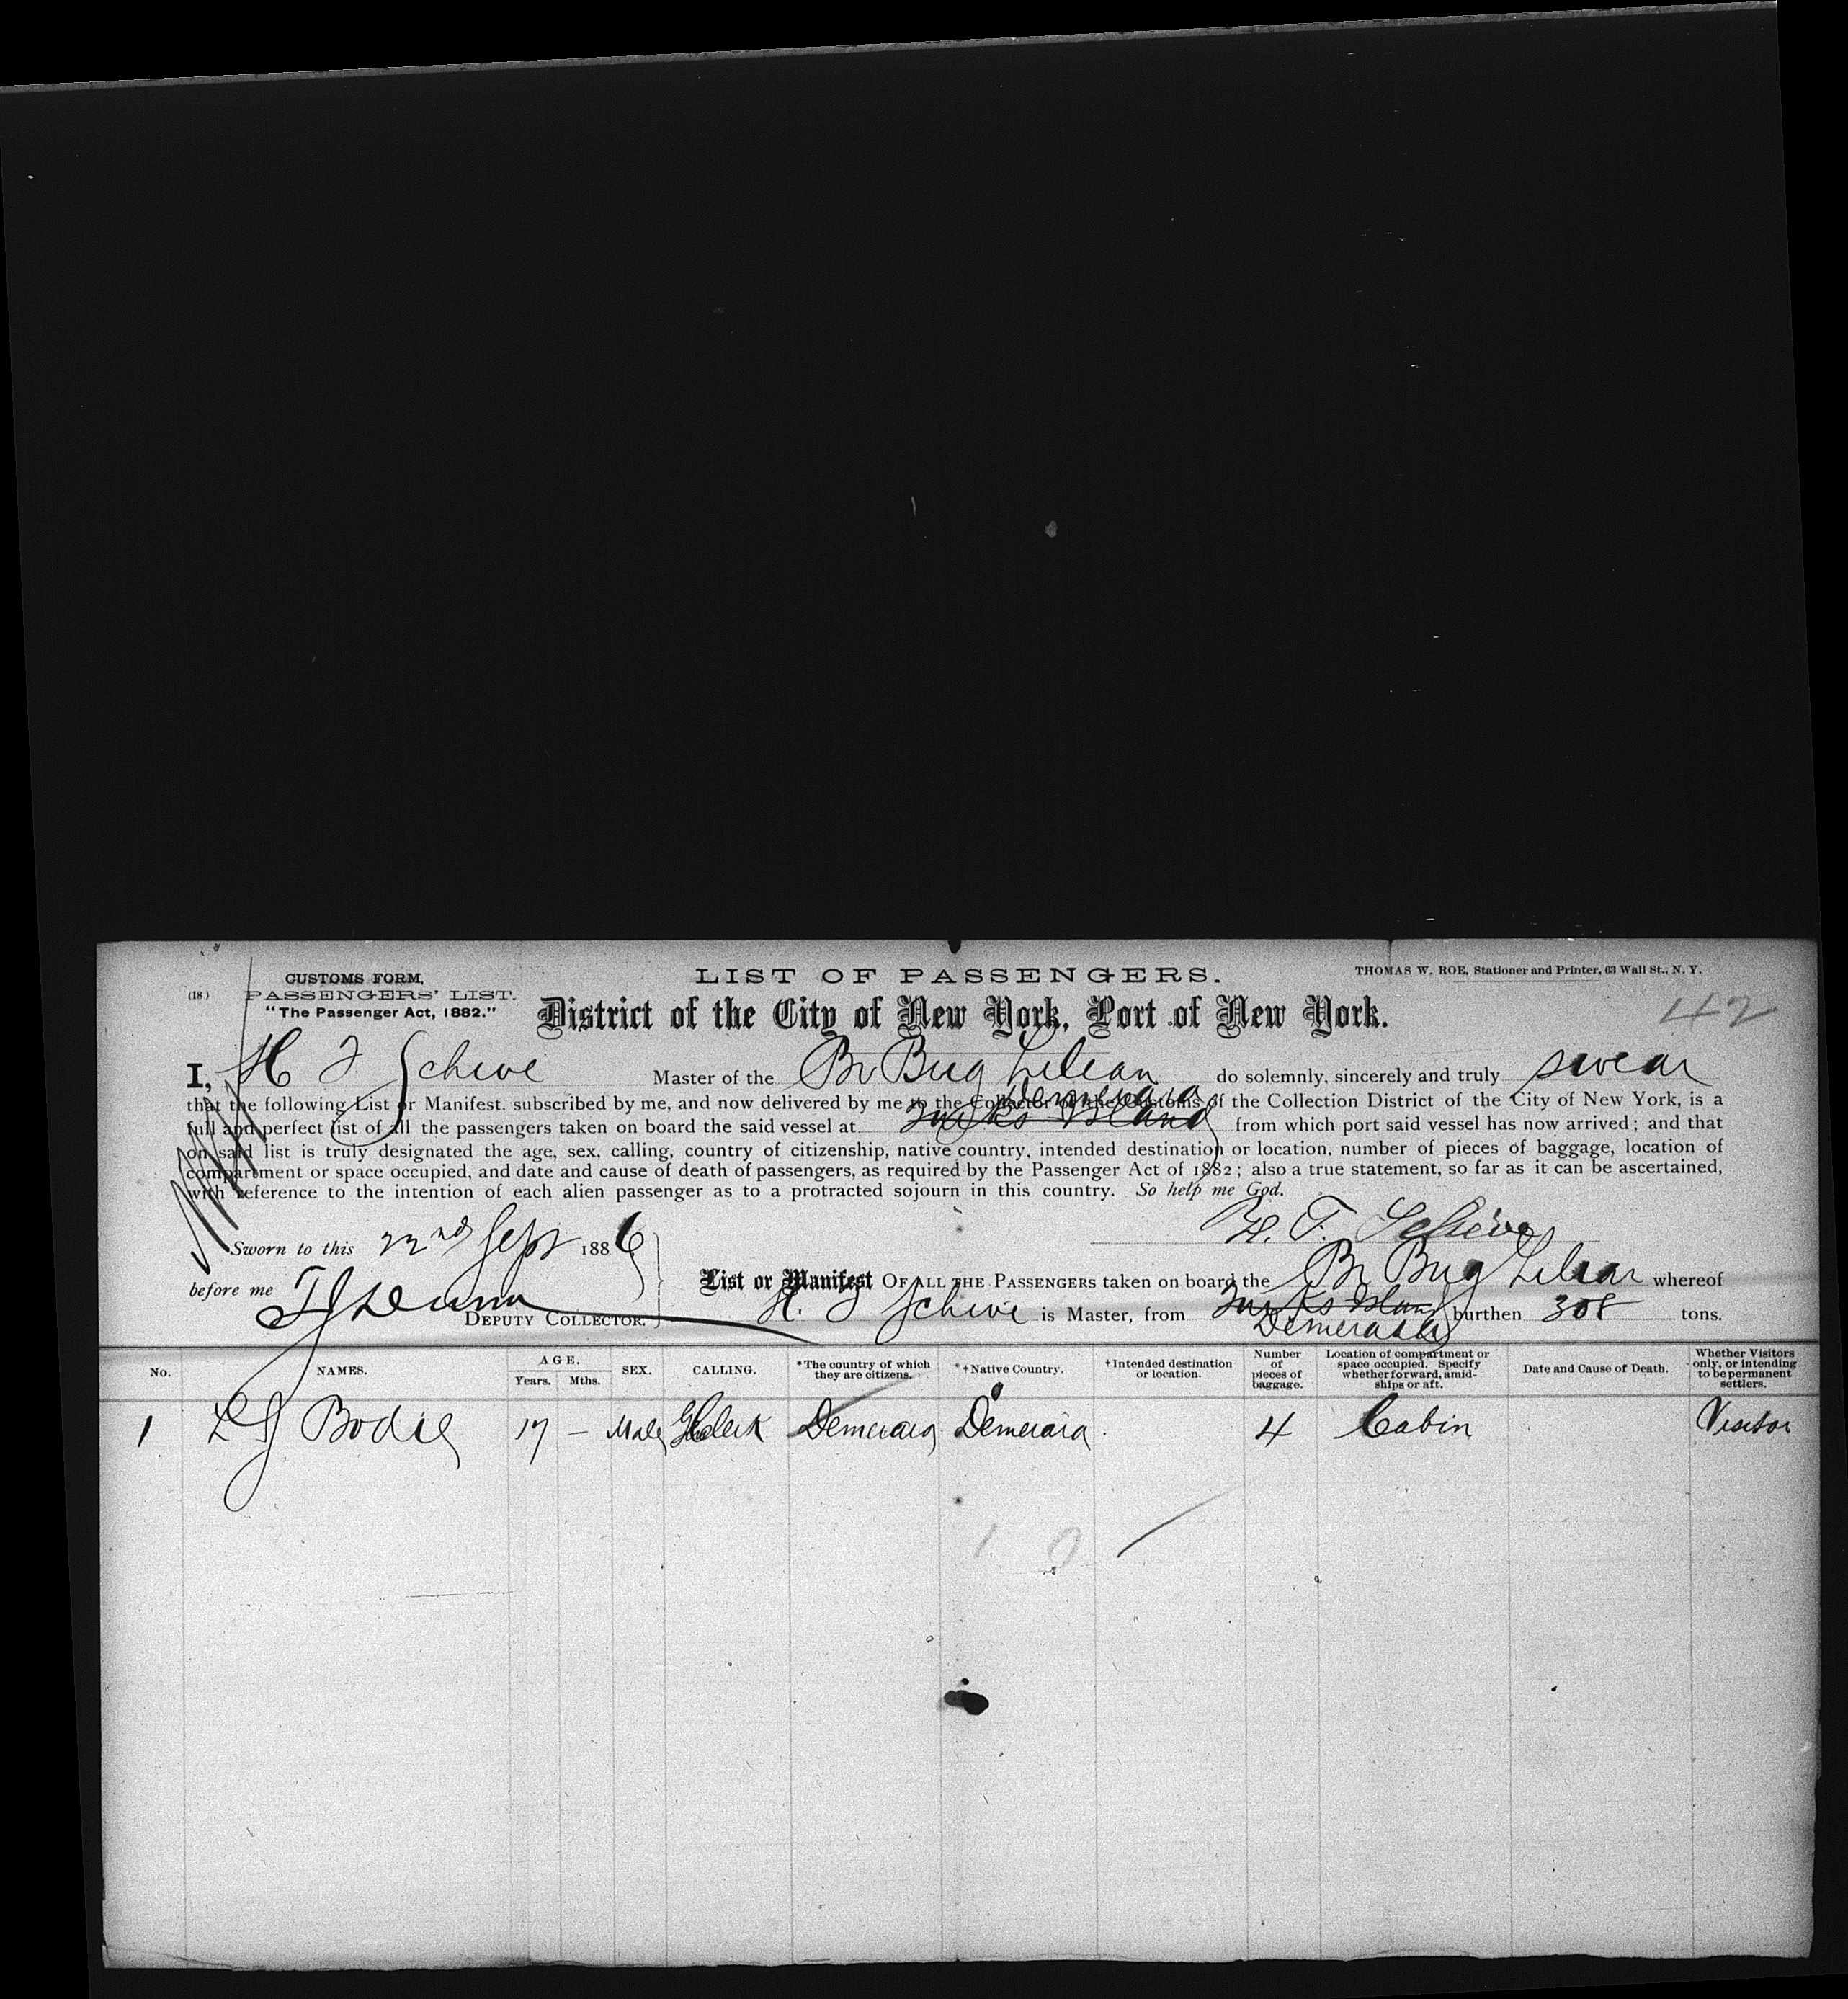 CUSTOMS FORM,
(18) PASSENGERS' LIST.
"The Passenger Act, 1882."
LIST OF PASSENGERS.
THOMAS W. ROE, Stationer and Printer, 63 Wall St., N. Y.
District of the City of New York, Port of New York.
42
I, H Master of the Br Brig do solemnly, sincerely and truly swear
Demerara
that the following List or Manifest, subscribed by me, and now delivered by me to the Collector of the Customs of the Collection District of the City of New York, is a
full and perfect list of all the passengers taken on board the said vessel at Turks Island from which port said vessel has now arrived; and that
on said list is truly designated the age, sex, calling, country of citizenship, native country, intended destination or location, number of pieces of baggage, location of
compartment or space occupied, and date and cause of death of passengers, as required by the Passenger Act of 1882; also a true statement, so far as it can be ascertained,
with reference to the intention of each alien passenger as to a protracted sojourn in this country. So help me God.
Sworn to this 22nd Sept 1886
before me
DEPUTY COLLECTOR.
List or Manifest OF ALL THE PASSENGERS taken on board the Br Brig whereof
H. is Master, from Turks Island burthen 308 tons.
Demerara
No. NAMES. AGE. Years. Mths. SEX. CALLING. *The country of which they are citizens. *†Native Country. †Intended destination or location. Number of pieces of baggage. Location of compartment or space occupied. Specify whether forward, amidships or aft. Date and Cause of Death. Whether Visitors only, or intending to be permanent settlers.
1 Bodie 17 – Male Clerk Demerara Demerara 4 Cabin Visitor